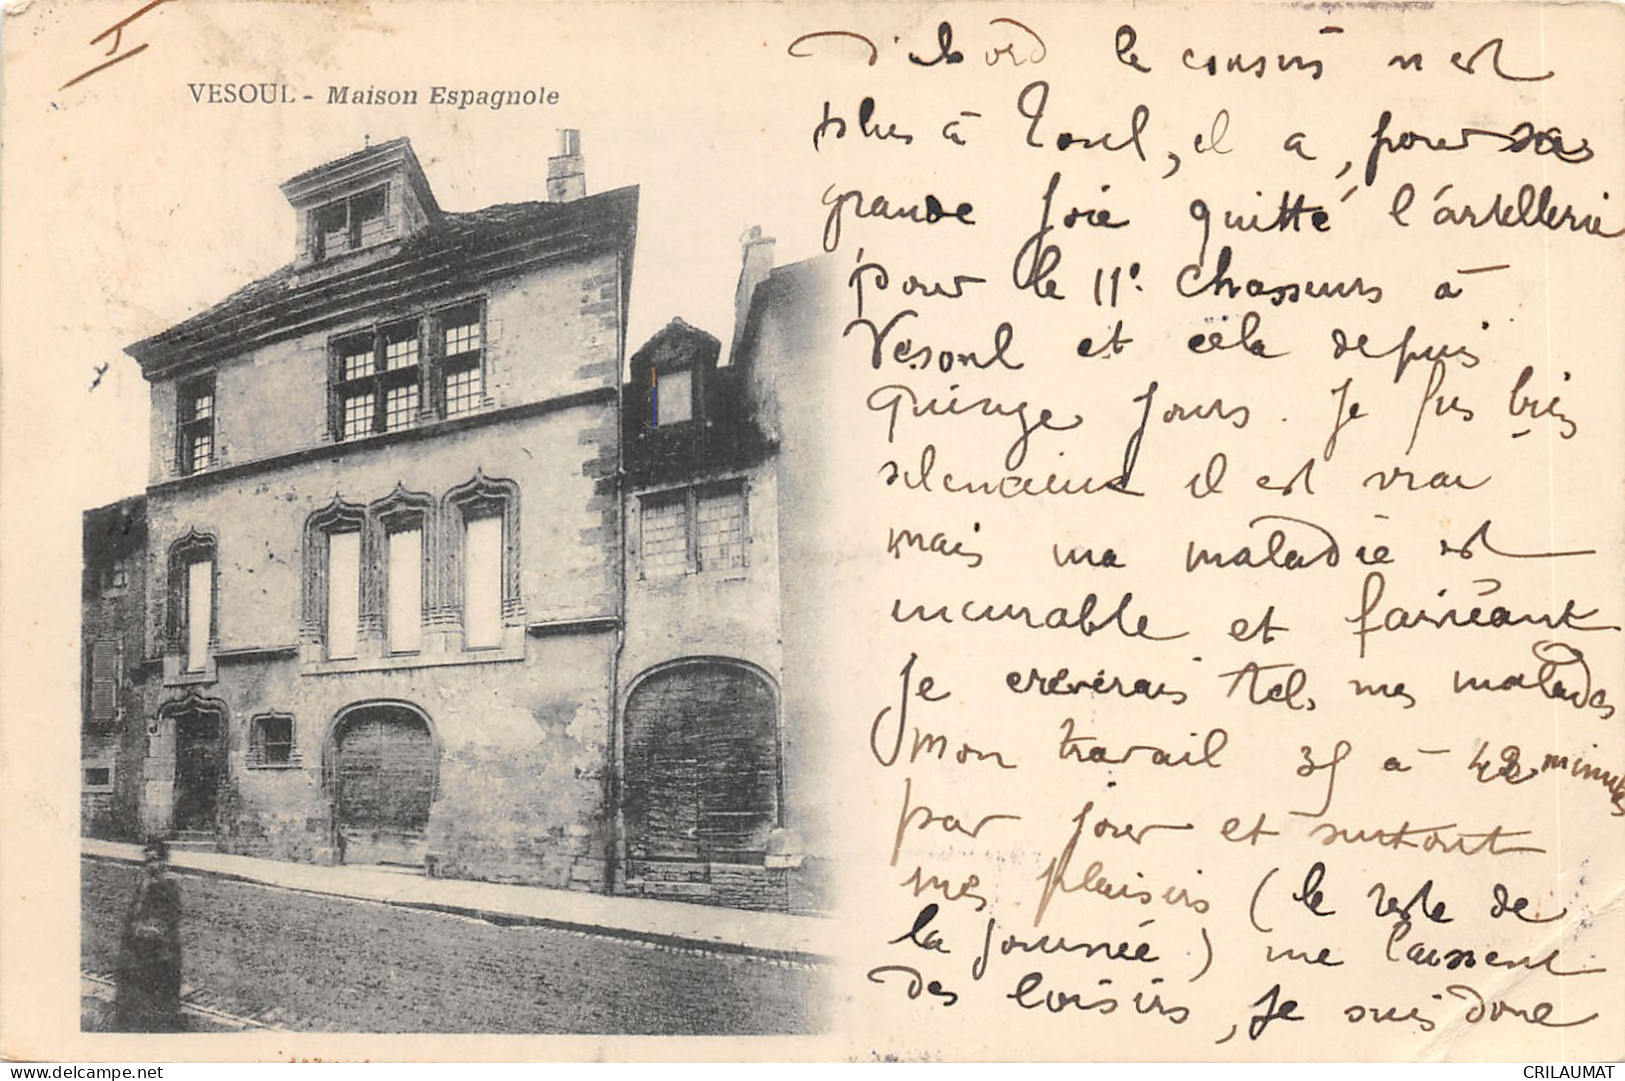 I
VESOUL - Maison Espagnole
D'abord le cousin n'est
plus à Toul, il a, pour sa
grande joie quitté l'artillerie
pour le 11e. Chasseurs à
Vesoul et cela depuis
quinze jours. Je fus bien
silencieux il est vrai
mais ma maladie est
incurable et fainéant
je crèverais tel, mes malades
mon travail 35 à 42 minutes
par jour et surtout
mes plaisirs (le reste de
la journée) me laissent
des loisirs, je suis donc
delcampe.net
CRILAUMAT